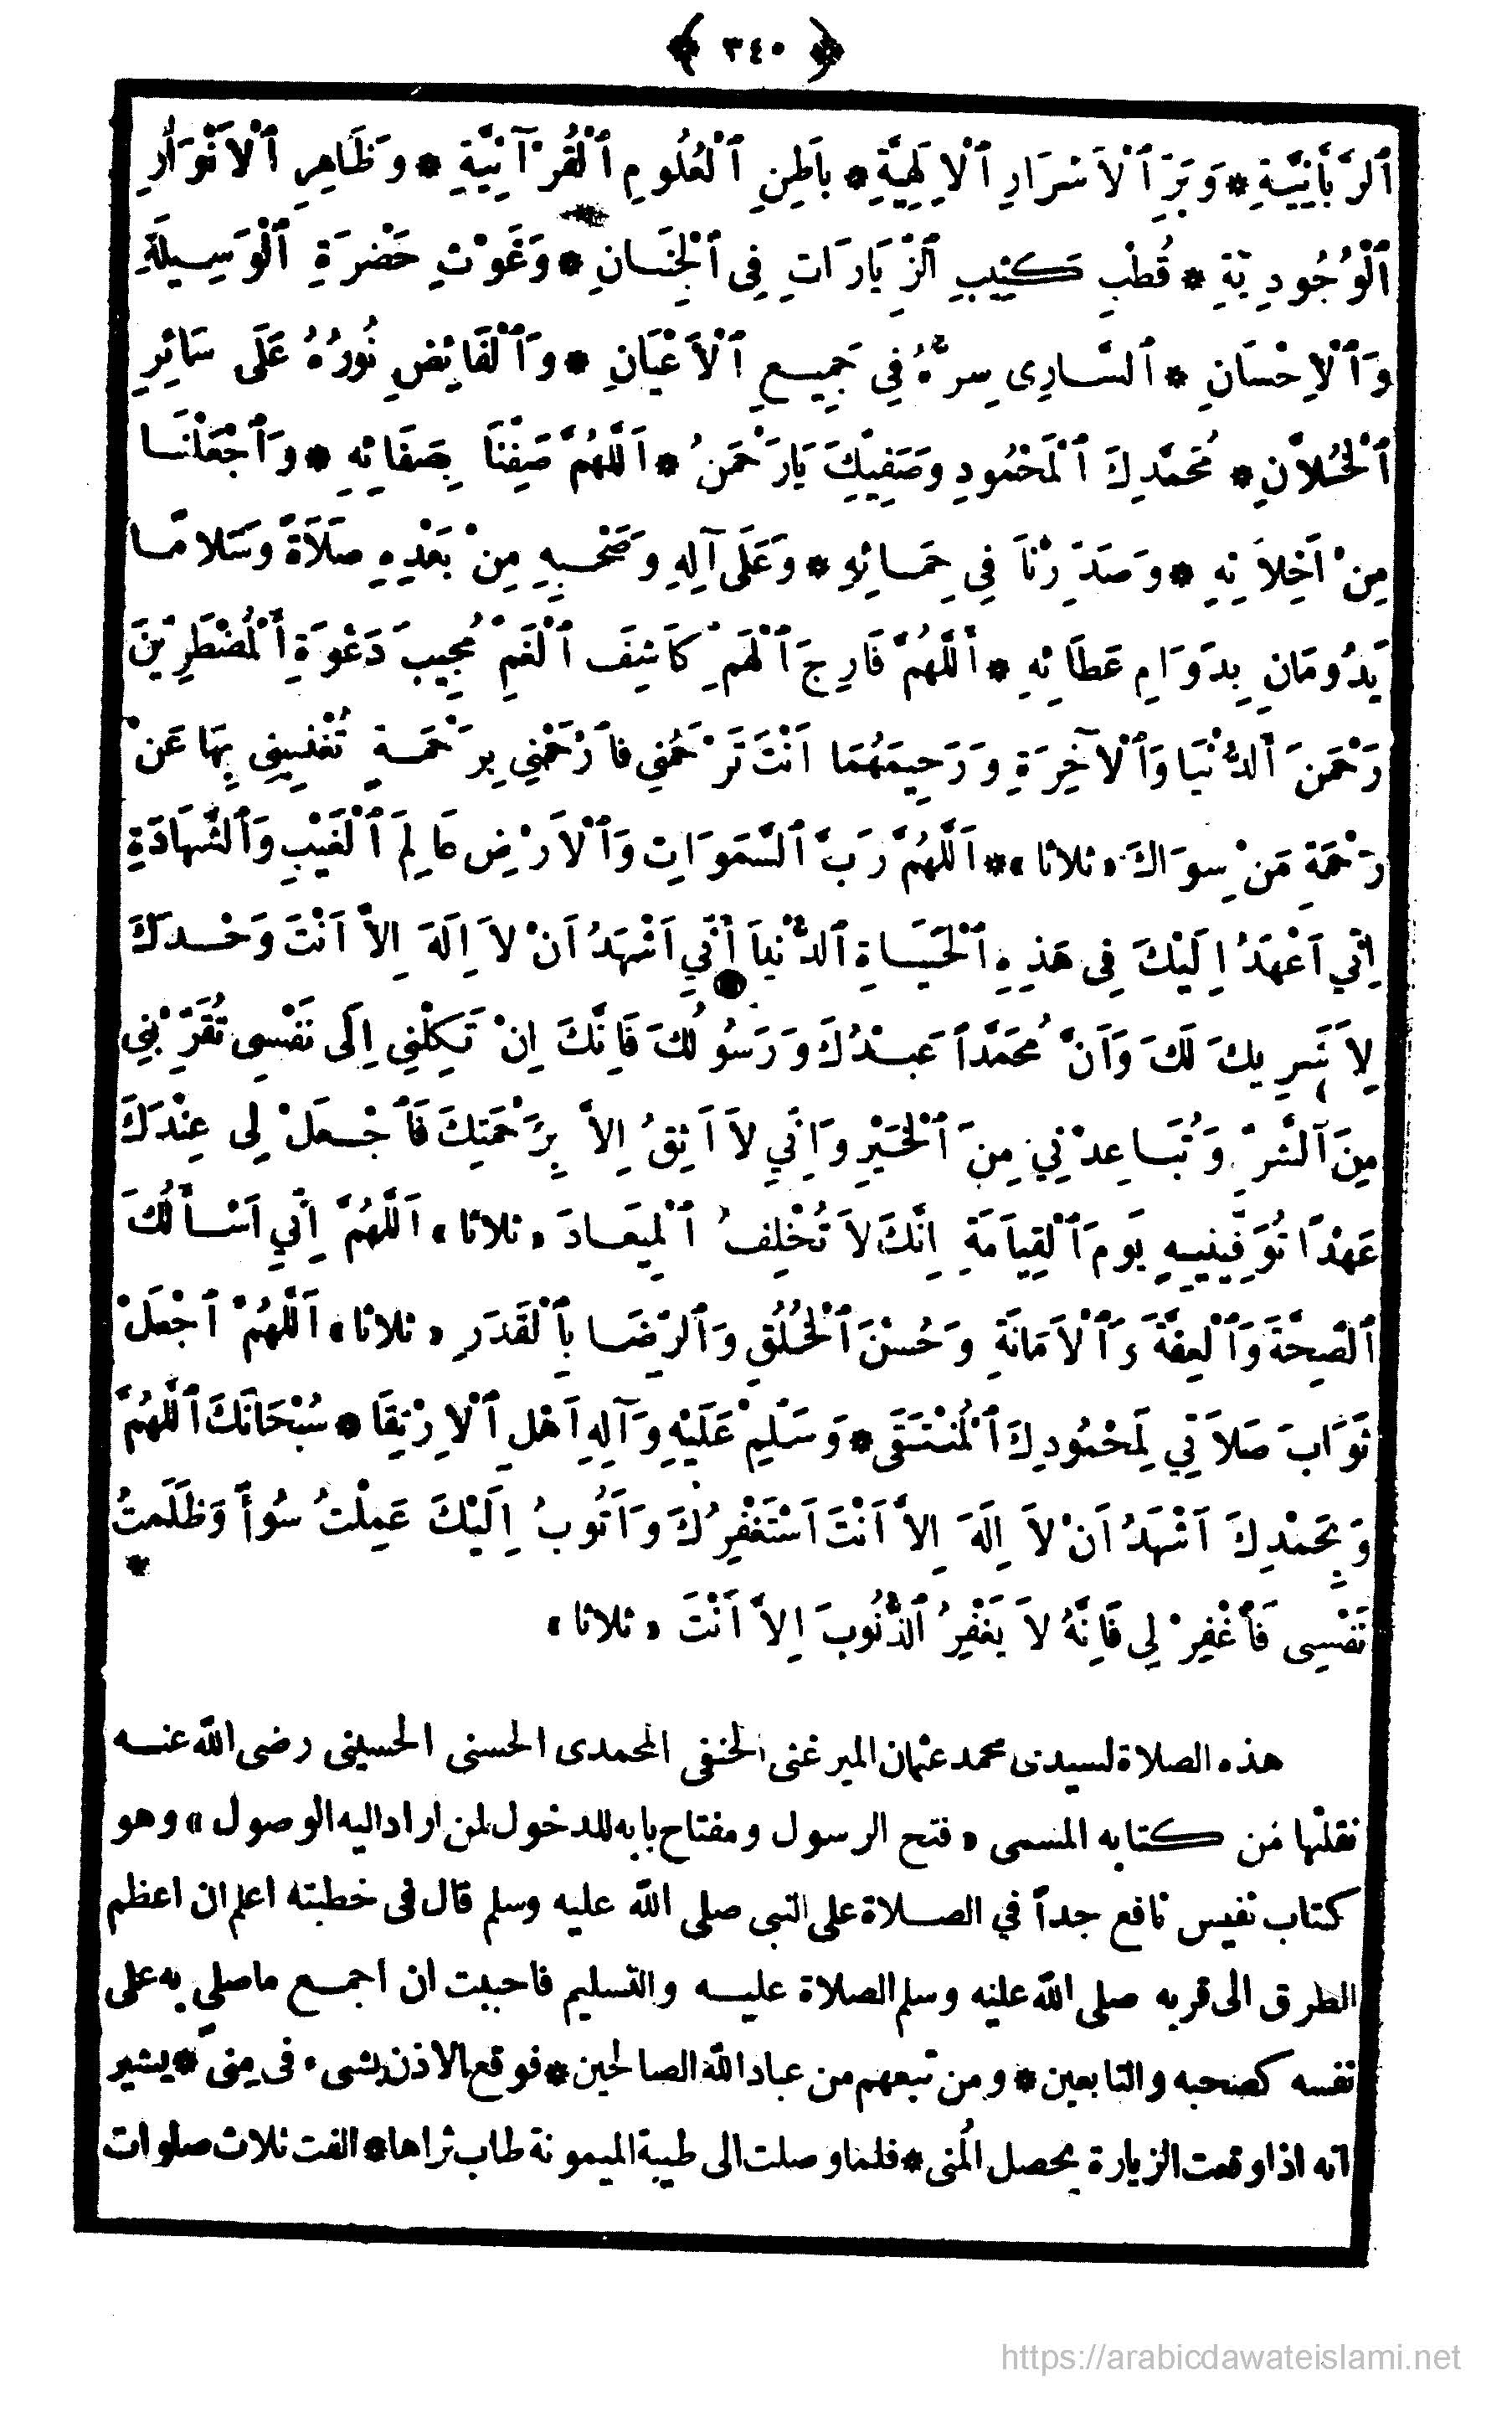 ﴿ ٣٤٠ ﴾
ٱلرَّبَّانِيَّةِ * وَبَرِّ ٱلْأَسْرَارِ ٱلْإِلَهِيَّةِ * بَاطِنِ ٱلْعُلُومِ ٱلْقُرْآنِيَّةِ * وَظَاهِرِ ٱلْأَنْوَارِ
ٱلْوُجُودِيَّةِ * قُطْبِ كَثِيبِ ٱلزِّيَارَاتِ فِى ٱلْجِنَانِ * وَغَوْثِ حَضْرَةِ ٱلْوَسِيلَةِ
وَٱلْإِحْسَانِ * ٱلسَّارِى سِرُّهُ فِي جَمِيعِ ٱلْأَعْيَانِ * وَٱلْفَائِضِ نُورُهُ عَلَى سَائِرِ
ٱلْخُلَّانِ * مُحَمَّدِكَ ٱلْمَحْمُودِ وَصَفِيِّكَ يَارَحْمَنُ * اَللَّهُمَّ صَفِّنَا بِصَفَائِهِ * وَٱجْعَلْنَا
مِنْ اَخِلَّائِهِ * وَصَدِّرْنَا فِي حِمَائِهِ * وَعَلَى آلِهِ وَصَحْبِهِ مِنْ بَعْدِهِ صَلَاةً وَسَلَامًا
يَدُومَانِ بِدَوَامِ عَطَائِهِ * أَللَّهُمَّ فَارِجَ ٱلْهَمِّ كَاشِفَ ٱلْغَمِّ مُجِيبَ دَعْوَةِ ٱلْمُضْطَرِّينَ
رَحْمَنَ ٱلدُّنْيَا وَٱلْآخِرَةِ وَرَحِيمَهُمَا اَنْتَ تَرْحَمُنِي فَٱرْحَمْنِي بِرَحْمَةٍ تُغْنِينِي بِهَا عَنْ
رَحْمَةِ مَنْ سِوَاكَ «ثلاثا» * اَللَّهُمَّ رَبَّ ٱلسَّمَوَاتِ وَٱلْأَرْضِ عَالِمَ ٱلْغَيْبِ وَٱلشَّهَادَةِ
اِنِّي اَعْهَدُ اِلَيْكَ فِى هَذِهِ ٱلْحَيَاةِ ٱلدُّنْيَا أَنِّي اَشْهَدُ اَنْ لَا اِلَهَ اِلَّا اَنْتَ وَحْدَكَ
لَا شَرِيكَ لَكَ وَاَنَّ مُحَمَّدًا عَبْدُكَ وَرَسُولُكَ فَاِنَّكَ اِنْ تَكِلْنِي اِلَى نَفْسِى تُقَرِّبْنِي
مِنَ ٱلشَّرِّ وَتُبَاعِدْنِي مِنَ ٱلْخَيْرِ وَاِنِّي لَا اَثِقُ اِلَّا بِرَحْمَتِكَ فَٱجْعَلْ لِى عِنْدَكَ
عَهْدًا تُوَفِّينِيهِ يَومَ ٱلْقِيَامَةِ اِنَّكَ لَا تُخْلِفُ ٱلْمِيعَادَ «ثلاثا» اَللَّهُمَّ اِنِّي اَسْأَلُكَ
ٱلصِّحَّةَ وَٱلْعِفَّةَ وَٱلْأَمَانَةَ وَحُسْنَ ٱلْخُلُقِ وَٱلرِّضَا بِٱلْقَدَرِ «ثلاثا» اَللَّهُمَّ ٱجْعَلْ
ثَوَابَ صَلَاتِي لِمَحْمُودِكَ ٱلْمُنْتَقَى * وَسَلِّمْ عَلَيْهِ وَآلِهِ اَهْلِ ٱلْاِرْتِقَا * سُبْحَانَكَ ٱللَّهُمَّ
وَبِحَمْدِكَ اَشْهَدُ اَنْ لَا اِلَهَ اِلَّا اَنْتَ اَسْتَغْفِرُكَ وَاَتُوبُ اِلَيْكَ عَمِلْتُ سُوأً وَظَلَمتُ
نَفْسِى فَٱغْفِرْ لِى فَاِنَّهُ لَا يَغْفِرُ ٱلذُّنُوبَ اِلَّا اَنْتَ «ثلاثا»
هذه الصلاة لسيدى محمد عثمان الميرغنى الحنفى المحمدى الحسنى الحسينى رضى الله عنه
نقلتها من كتابه المسمى «فتح الرسول ومفتاح بابه للدخول لمن اراد اليه الوصول» وهو
كتاب نفيس نافع جداً في الصلاة على النبى صلى الله عليه وسلم قال فى خطبته اعلم ان اعظم
الطرق الى قربه صلى الله عليه وسلم الصلاة عليه والتسليم فاحببت ان اجمع ماصلي به على
نفسه كصحبه والتابعين * ومن تبعهم من عباد الله الصالحين * فوقع الاذن بشىء فى مِنى * يشير
انه اذا وقعت الزيارة يحصل المُنى * فلما وصلت الى طيبة الميمونة طاب ثراها * الفت ثلاث صلوات
https://arabicdawateislami.net